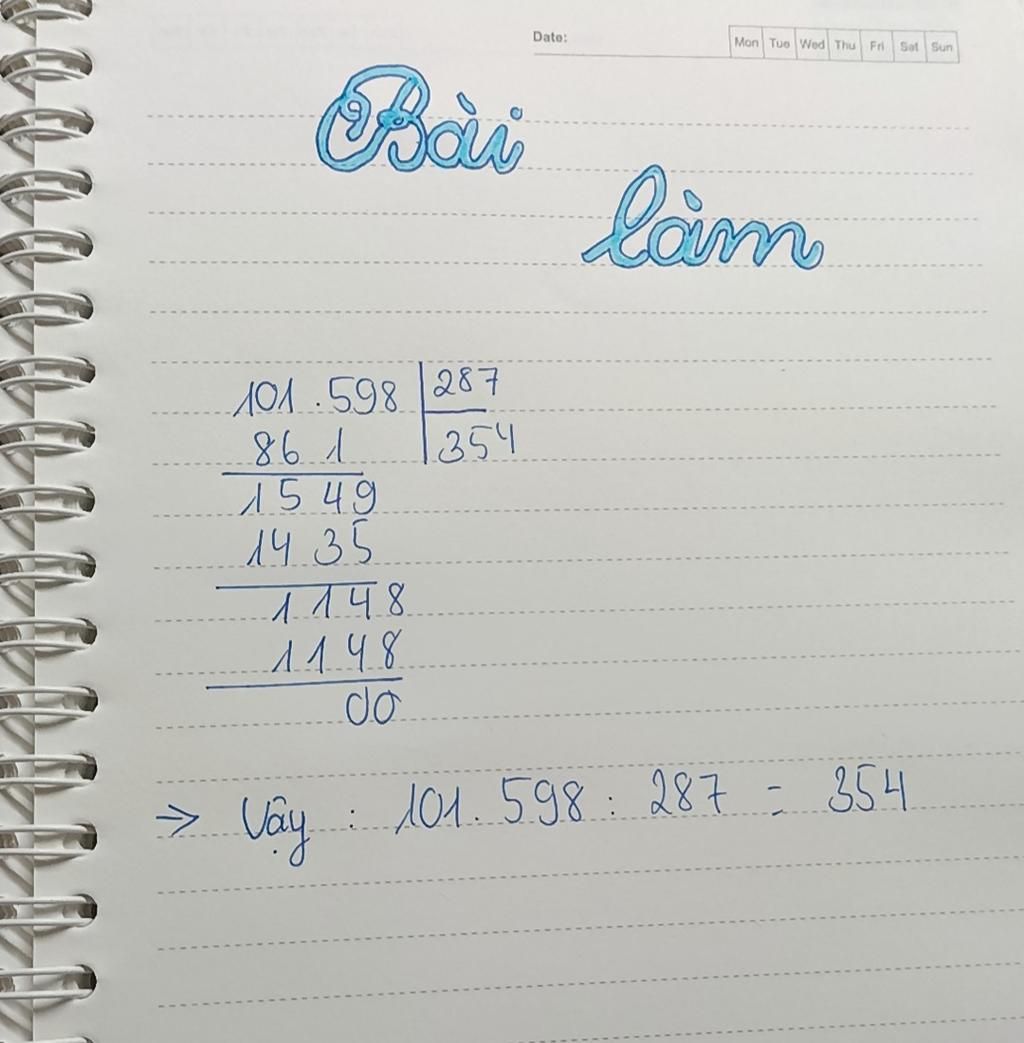 Date:
Mon Tue Wed Thu Fri Sat Sun
Bài
làm
101.598 287
86 1 354
15 49
14 35
1 148
1 148
00
=> Vậy : 101.598 : 287 = 354